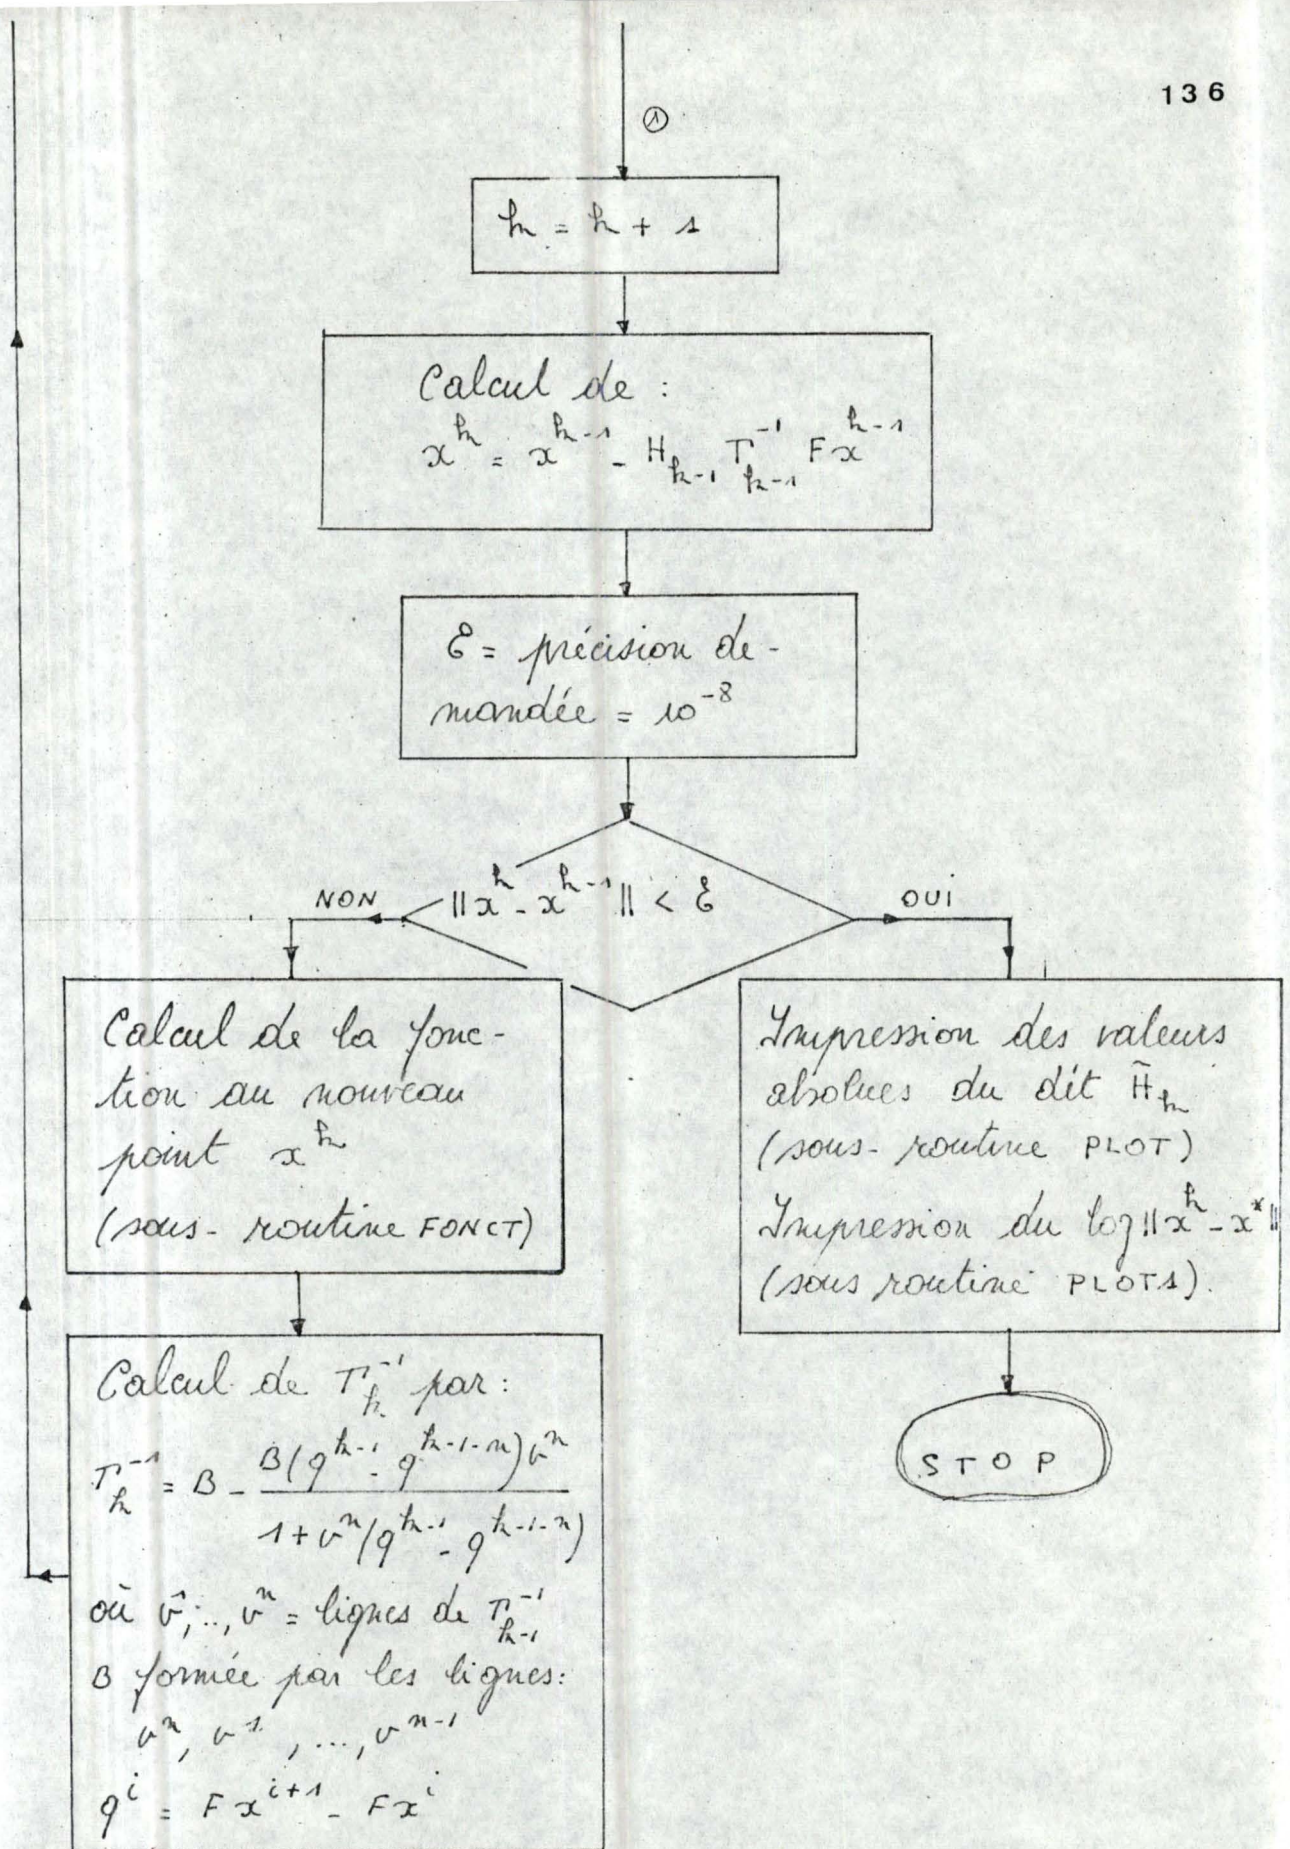 136
①
k = k + 1
Calcul de :
x^k = x^{k-1} - H_{k-1} T_{k-1}^{-1} F x^{k-1}
Ɛ = précision de-
mandée = 10^{-8}
NON
||x^k - x^{k-1}|| < Ɛ
OUI
Calcul de la fonc-
tion au nouveau
point x^k
(sous-routine FONCT)
Impression des valeurs
absolues du dét H̃_k
(sous-routine PLOT)
Impression du log||x^k - x^*||
(sous routine PLOT1).
Calcul de T_k^{-1} par :
T_k^{-1} = B - B(q^{k-1} - q^{k-1-n})v^n
1 + v^n(q^{k-1} - q^{k-1-n})
où v^1, ..., v^n = lignes de T_{k-1}^{-1}
B formée par les lignes:
v^n, v^1, ..., v^{n-1}
q^i = F x^{i+1} - F x^i
STOP